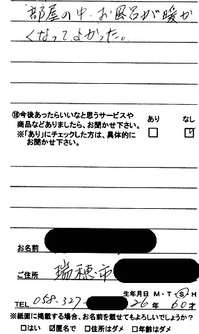 部屋の中・お風呂が暖か
くなってよかった。
⑩今後あったらいいなと思うサービスや
商品などありましたら、お聞かせ下さい。
※「あり」にチェックした方は、具体的に
お聞かせ下さい。
あり なし
お名前
ご住所 瑞穂市
生年月日 M・T・S・H
TEL 058-327- 26年 60才
※紙面に掲載する場合、お名前を載せてもよろしいでしょうか?
□はい ☑匿名で □住所はダメ □年齢はダメ